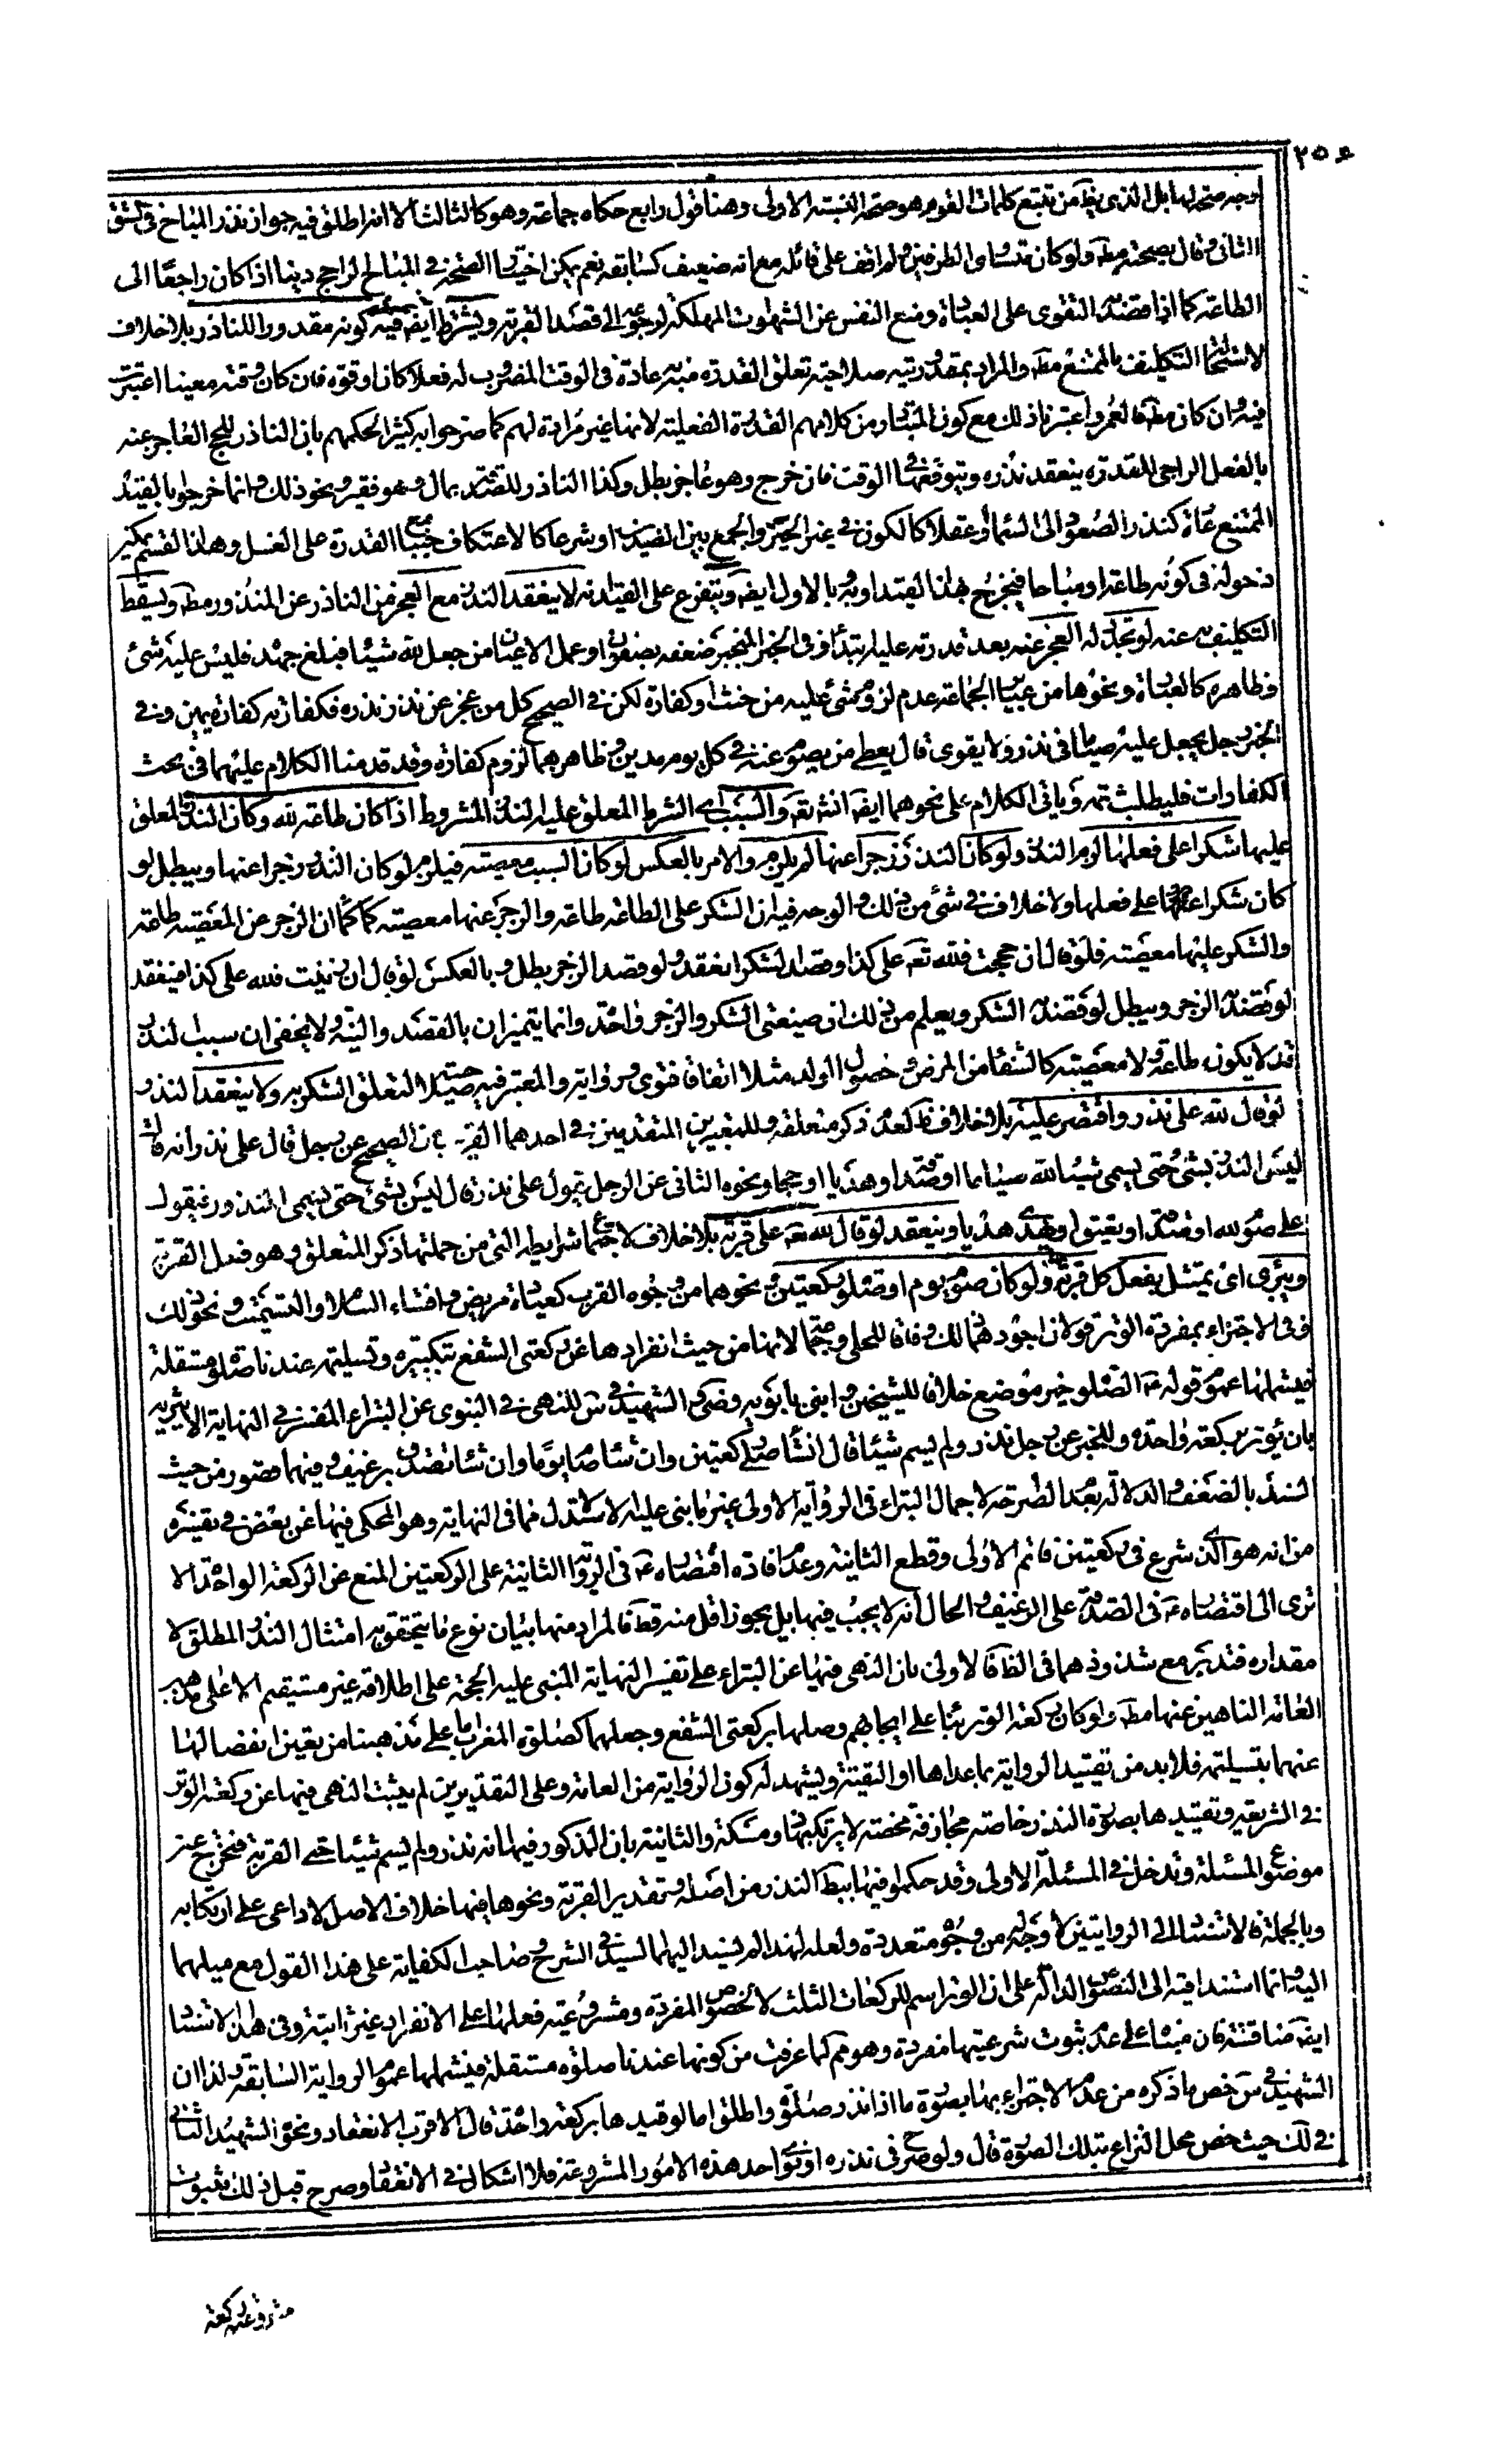 ٢٥۶
اوجه صحتهما بل الذى يظ من تتبع كلمات القوم هو صحة النسبة الاولى وهنا قول رابع حكاه جماعة وهو كالثالث الا انه اطلق فيه جواز نذر المباح فى الشق
الثانى وقال بصحته مط ولو كان متساوى الطرفين ولم اقف على قائله مع انه ضعيف كسابقه نعم يمكن اختيار الصحة فى المباح الراجح دينا اذا كان راجعا الى
الطاعة كما اذا قصد به التقوى على العبادة ومنع النفس عن الشهوات المهلكة لرجوعه الى قصد القربة ويشترط ايض فيه كونه مقدورا للناذر بلا خلاف
لاستحالة التكليف بالممتنع مط والمراد بمقدوريته صلاحية تعلق القدرة منه به عادة فى الوقت المضروب له فعلا كان او قوة فان كان وقته معينا اعتبرت
فيه وان كان مط فالعمر واعتبرنا ذلك مع كون المتبادر من كلامهم القدرة الفعلية لانها غير مرادة لهم كما صرحوا به كثير الحكمهم بان الناذر للحج العاجز عنه
بالفعل الراجى للقدرة ينعقد نذره ويتوقعها الوقت فان خرج وهو عاجز بطل وكذا الناذر للتصدق بمال وهو فقير ونحو ذلك وانما خرجوا بالقيد
الممتنع عادة كنذر الصعود الى السماء او عقلا كالكون فى غير الحيز والجمع بين الضدين او شرعا كالاعتكاف جنبا مع القدرة على الغسل وهذا القسم يمكن
دخوله فى كونه طاعة او مباحا فيخرج بهذا القيد او به وبالاول ايض ويتفرع على القيد انه لا ينعقد النذر مع العجز من الناذر عن المنذور مط ويسقط
التكليف به عنه لو تجدد له العجز عنه بعد قدرته عليه ابتداء وفى الخبر المنجبر ضعفه بصفوان وعمل الاعيان من جعل لله شيئا فبلغ جهده فليس عليه شئ
وظاهره كالعبادة ونحوها من عبائر الجماعة عدم لزوم شئ عليه من حنث او كفارة لكن فى الصحيح كل من عجز عن نذر نذره فكفارته كفارة يمين وفى
الخبر رجل يجعل عليه صياما فى نذر ولا يقوى قال يعطى من يصوم عنه فى كل يوم مدين وظاهرهما لزوم كفارة وقد قدمنا الكلام عليهما فى بحث
الكفارات فليطلب ثمه ويأتى الكلام على نحوهما ايض انش تع والسبب اى الشرط المعلق عليه النذر المشروط اذا كان طاعة لله وكان النذر المعلق
عليها شكرا على فعلها لزم النذر ولو كان النذر زجرا عنها لم يلزم والامر بالعكس لو كان السبب معصية فيلزم لو كان النذر زجرا عنها ويبطل لو
كان شكرا عليها على فعلها ولا خلاف فى شئ من ذلك والوجه فيه ان الشكر على الطاعة طاعة والزجر عنها معصية كما ان الزجر عن المعصية طاعة
والشكر عليها معصية فلو قال ان حججت فلله تع على كذا وقصد الشكر انعقد ولو قصد الزجر بطل وبالعكس لو قال ان زنيت فلله على كذا فينعقد
لو قصد به الزجر ويبطل لو قصد به الشكر ويعلم من ذلك ان صيغتى الشكر والزجر واحدة وانما يتميزان بالقصد والنية ولا يخفى ان سبب النذر
قد لا يكون طاعة ولا معصية كالشفاء من المرض وحصول الولد مثلا اتفاقا فتوى ورواية والمعتبر فيه صلاحيته لتعلق الشكر به ولا ينعقد النذر
لو قال لله على نذر واقتصر عليه بلا خلاف ظ لعدم ذكر متعلقه وللمعتبرين المتقدمين فى احدهما القريب من الصحيح عن رجل قال على نذر انه قال
ليس النذر بشئ حتى يسمى شيئا لله صياما او صدقة او هديا او حجا ونحوه الثانى عن الرجل يقول على نذر قال ليس بشئ حتى يسمى النذر فيقول
على صوم لله او صدقة او يعتق او يهدى هديا وينعقد لو قال لله تع على قربة بلا خلاف لاجتماع شرايطه التى من جملتها ذكر المتعلق وهو فعل القربة
ويبرء اى يمتثل بفعل كل قربة ولو كان صوم يوم او صلوة ركعتين ونحوهما من وجوه القرب كعيادة مريض وافشاء السلام والتسميت ونحو ذلك
وفى الاجتزاء بمفردة الوتر قولان اجودهما ذلك وفاقا للحلى وجماعة لانها من حيث انفرادها عن ركعتى الشفع بتكبيره وتسليمه عندنا صلوة مستقلة
فيشملها عموم قوله ع الصلوة خير موضوع خلافا للشيخين وابنى بابويه وضى والشهيد فى س للنهى فى النبوى عن البتراء المفسر فى النهاية الاثيرية
بان يوتر بركعة واحدة وللخبر عن رجل نذر ولم يسم شيئا قال ان شاء صلى ركعتين وان شاء صام يوما وان شاء تصدق برغيف وفيهما قصور من حيث
السند بالضعف والدلالة بعد الطرح لاجمال البتراء فى الرواية الاولى غير ما بنى عليه الاستدلال مما فى النهاية وهو المحكى فيها عن بعض فى تفسيره
من انه هو الذى شرع فى ركعتين فاتم الاولى وقطع الثانية وعدم افادة اقتصاره ع فى الرواية الثانية على الركعتين المنع عن الركعة الواحدة الا
ترى الى اقتصاره ع فى الصدقة على الرغيف والحال انه لا يجب فيها بل يجوز اقل منه قط فالمراد منها بيان نوع ما يتحقق به امتثال النذر المطلق لا
مقداره فتدبر مع شذوذهما فى الظ فالاولى بان النهى فيها عن البتراء على تفسير النهاية المبنى عليه الحجة على اطلاقه غير مستقيم الا على مذهب
العامة الناهين عنها مط ولو كان ركعة الوتر بناء على ايجابهم وصلها بركعتى الشفع وجعلهما كصلوة المغرب لا على مذهبنا من تعين انفصالها
عنهما بتسليمة فلا بد من تقييد الرواية بما عداها او التقية ويشهد له كون الرواية من العامة وعلى التقديرين لم يثبت النهى فيها عن ركعة الوتر
فى الشريعة وتقييدها بصورة النذر خاصة مجازفة محضة لا يرتكبها ذو مسكة والثانية بان المذكور فيها انه نذر ولم يسم شيئا حتى القربة فتخرج عن
موضوع المسئلة وتدخل فى المسئلة الاولى وقد حكموا فيها ببطلان النذر من اصله وتقدير القربة ونحوها فيها خلاف الاصل لا داعى على ارتكابه
وبالجملة فالاستناد الى الروايتين لا وجه له من وجوه متعددة ولعله لهذا لم يستند اليهما السيد فى الشرح وصاحب الكفاية على هذا القول مع ميلهما
اليه وانما استندا فيه الى النصوص الدالة على ان الوتر اسم للركعات الثلث لا لخصوص المفردة ومشروعية فعلها على الانفراد غير ثابتة وفى هذا الاستناد
ايض مناقشة فان مبناه على عدم ثبوت شرعيتها مفردة وهو مم لما عرفت من كونها عندنا صلوة مستقلة فيشملها عموم الرواية السابقة ولذا ان
الشهيد فى س خص ما ذكره من عدم الاجتزاء بها بصورة ما اذا نذر صلوة واطلق اما لو قيدها بركعة واحدة قال الاقرب الانعقاد ونحوه الشهيد الثانى
فى لك حيث خص محل النزاع بتلك الصورة قال ولو صرح فى نذره او نوى احد هذه الامور المشروعة فلا اشكال فى الانعقاد وصرح قبل ذلك بثبوت
مشروعية ركعة